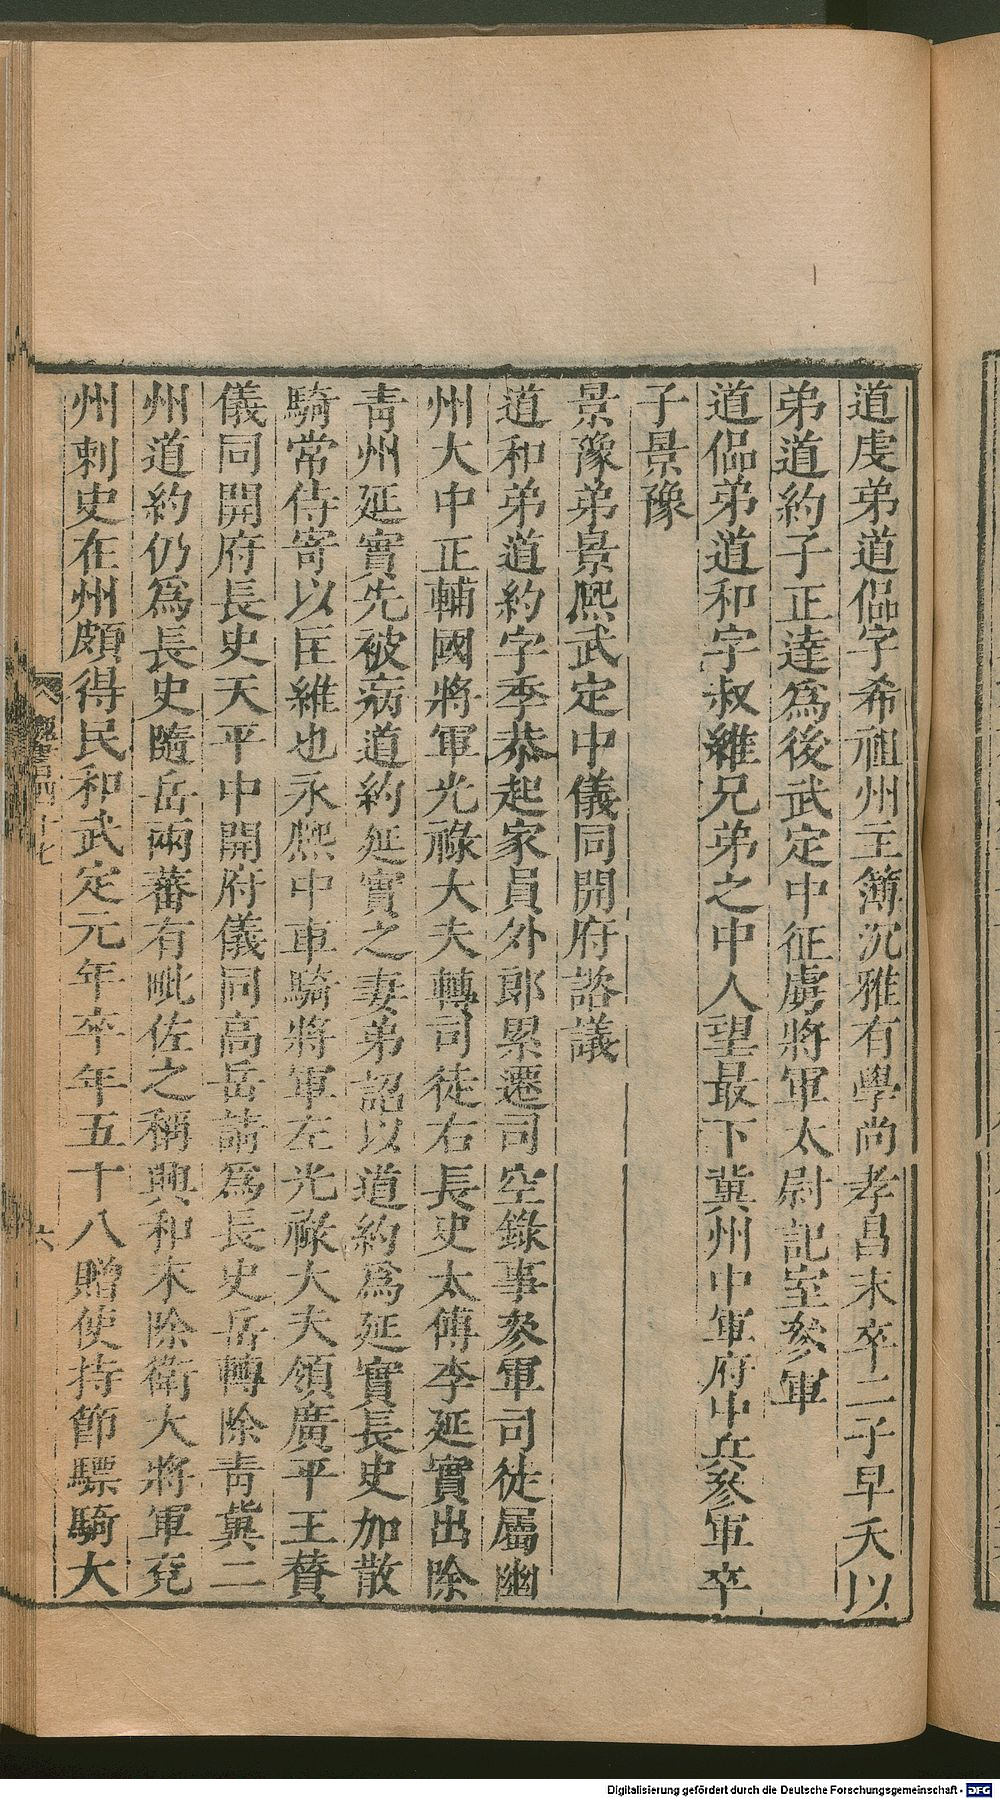 道虔弟道偘字希祖州主簿沉雅有學尚孝昌末卒二子早夭以
弟道約子正達爲後武定中征虜將軍太尉記室參軍
道偘弟道和字叔維兄弟之中人望最下冀州中軍府中兵參軍卒
子景豫
景豫弟景熙武定中儀同開府諮議
道和弟道約字季恭起家員外郎累遷司空錄事參軍司徒屬幽
州大中正輔國將軍光祿大夫轉司徒右長史太傅李延實出除
靑州延實先被病道約延實之妻弟詔以道約爲延實長史加散
騎常侍寄以匡維也永熙中車騎將軍左光祿大夫領廣平王贊
儀同開府長史天平中開府儀同高岳請爲長史岳轉除靑冀二
州道約仍爲長史隨岳兩蕃有毗佐之稱興和末除衛大將軍兗
州刺史在州頗得民和武定元年卒年五十八贈使持節驃騎大
魏書四十七
六
Digitalisierung gefördert durch die Deutsche Forschungsgemeinschaft - DFG